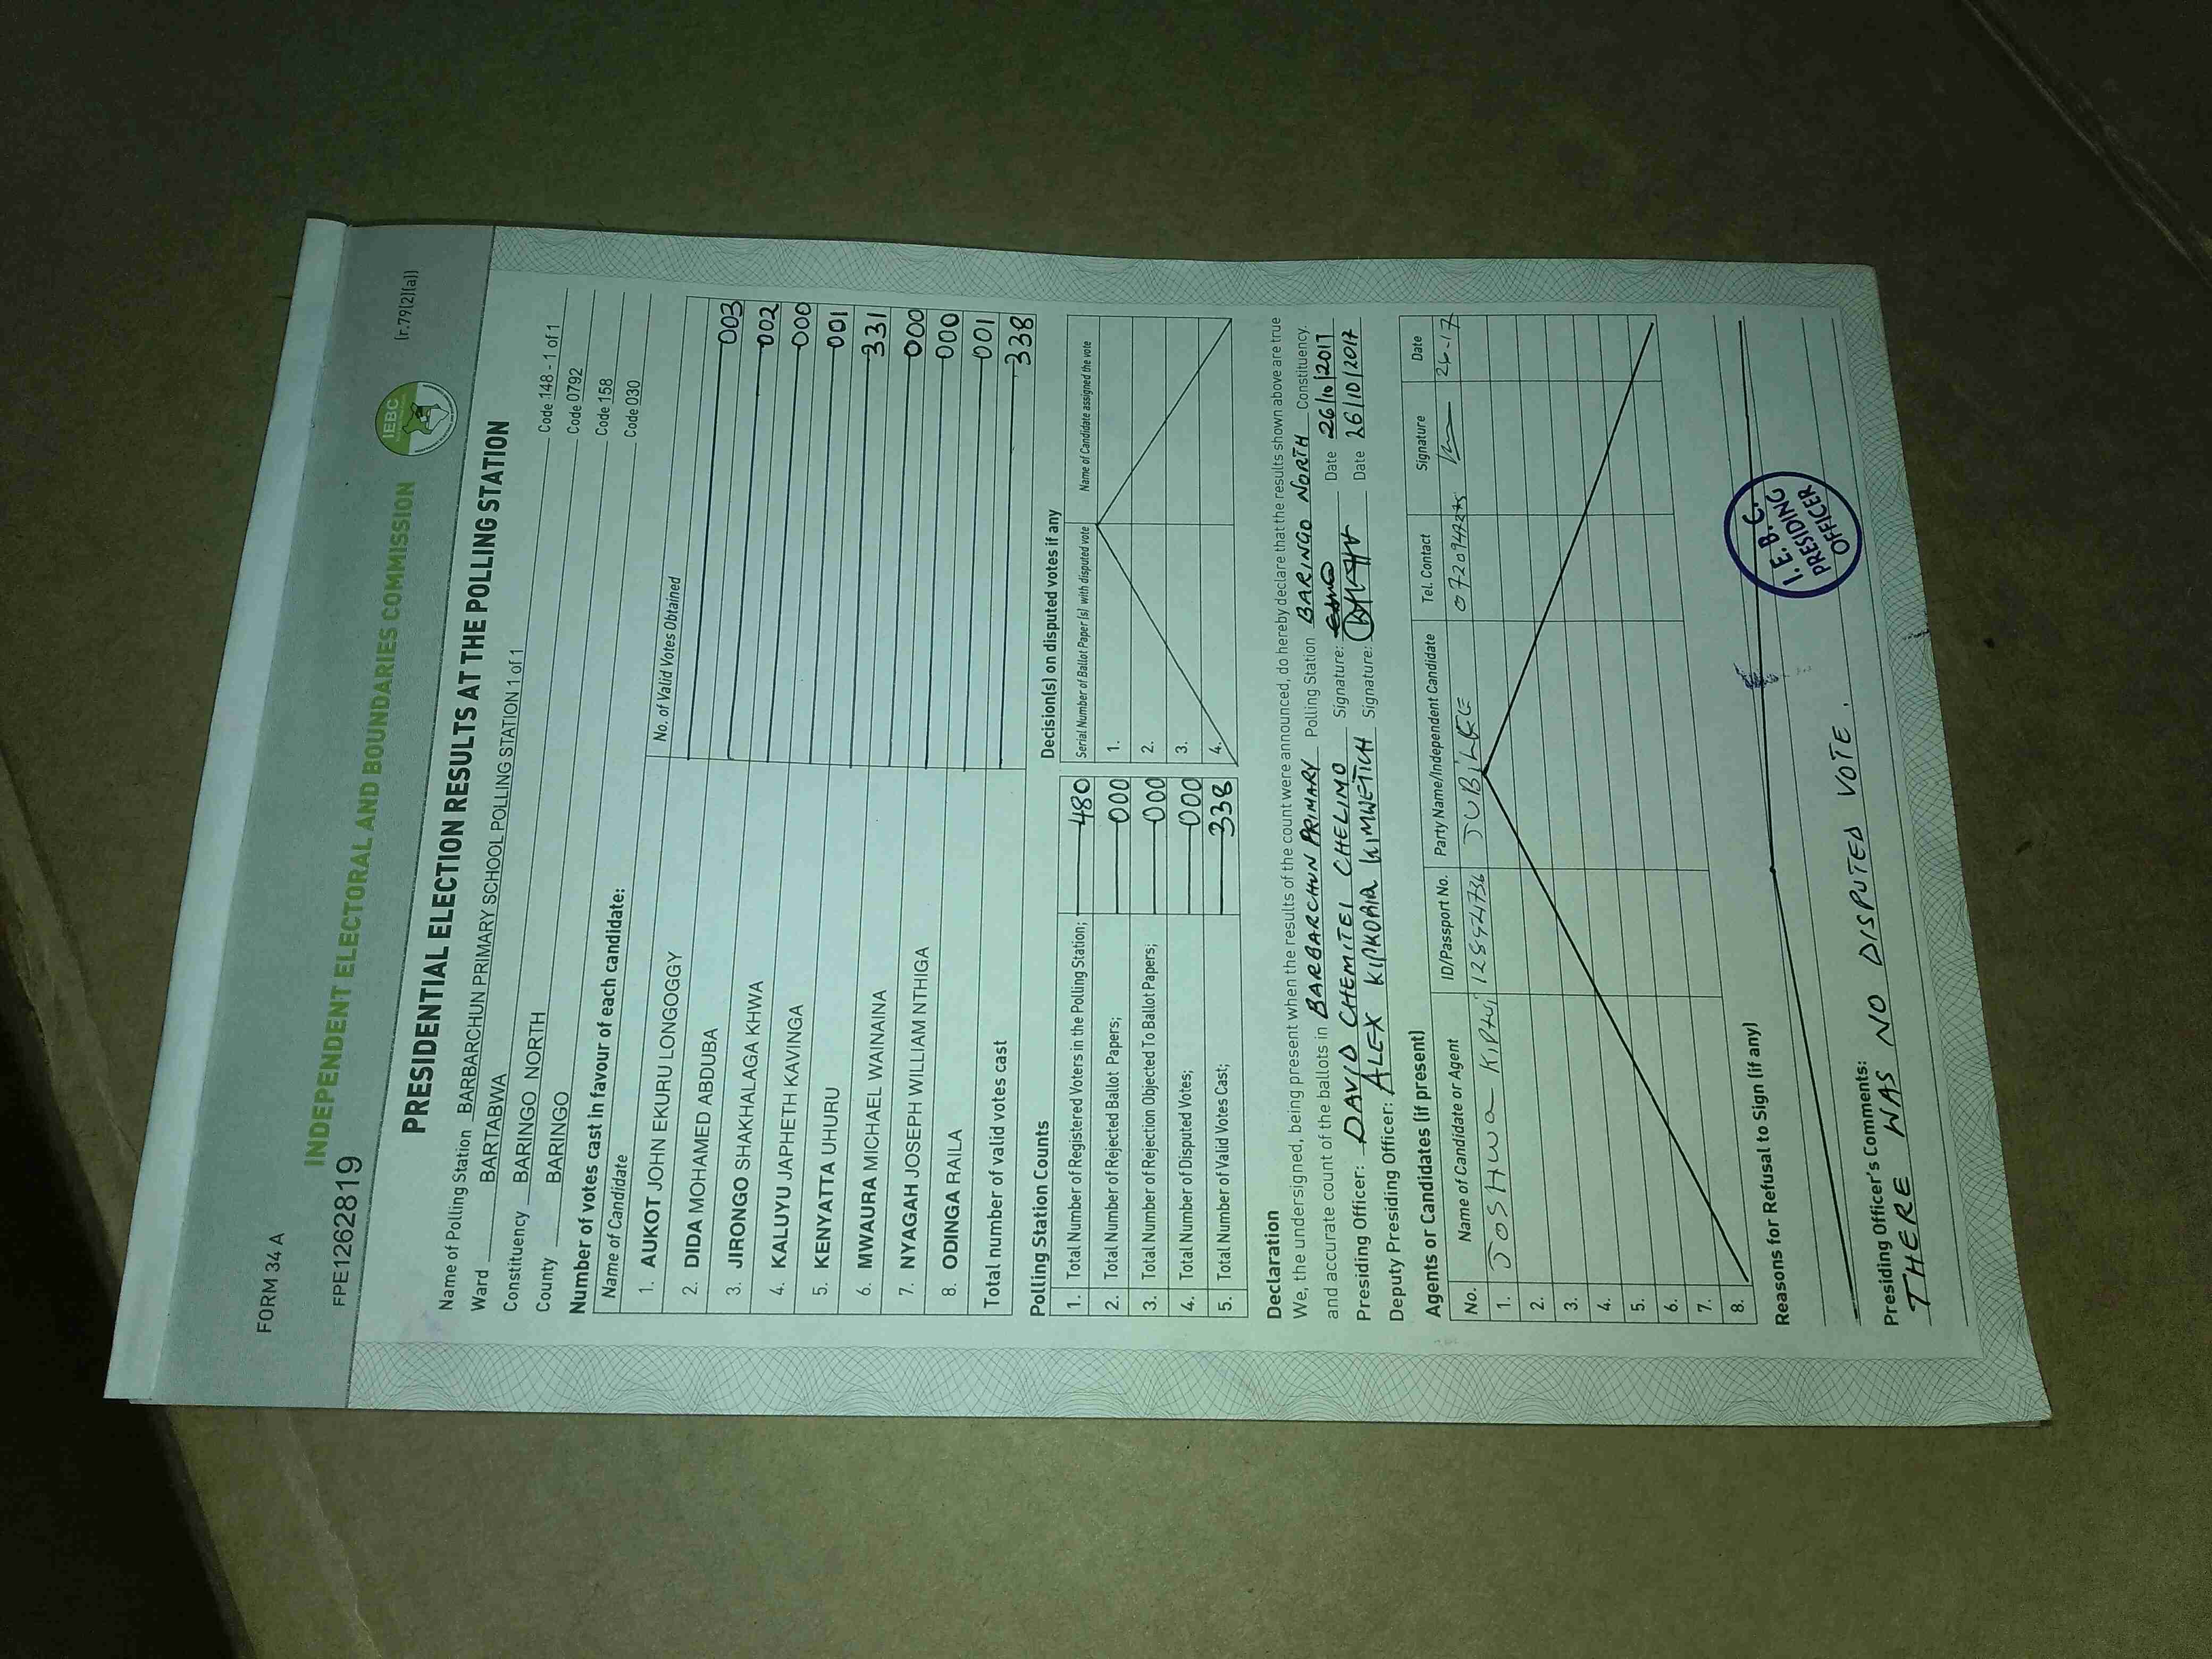 FORM 34 A
(r.79(2)(a))
INDEPENDENT ELECTORAL AND BOUNDARIES COMMISSION
IEBC
FPE1262819
PRESIDENTIAL ELECTION RESULTS AT THE POLLING STATION
Name of Polling Station BARBARCHUN PRIMARY SCHOOL POLLING STATION 1 of 1 Code 148 - 1 of 1
Ward BARTABWA Code 0792
Constituency BARINGO NORTH Code 158
County BARINGO Code 030
Number of votes cast in favour of each candidate:
Name of Candidate No. of Valid Votes Obtained
1. AUKOT JOHN EKURU LONGOGGY 003
2. DIDA MOHAMED ABDUBA 002
3. JIRONGO SHAKHALAGA KHWA 000
4. KALUYU JAPHETH KAVINGA 001
5. KENYATTA UHURU 331
6. MWAURA MICHAEL WAINAINA 000
7. NYAGAH JOSEPH WILLIAM NTHIGA 000
8. ODINGA RAILA 001
Total number of valid votes cast 338
Polling Station Counts
1. Total Number of Registered Voters in the Polling Station; 480
2. Total Number of Rejected Ballot Papers; 000
3. Total Number of Rejection Objected To Ballot Papers; 000
4. Total Number of Disputed Votes; 000
5. Total Number of Valid Votes Cast; 338
Decision(s) on disputed votes if any
Serial Number of Ballot Paper (s) with disputed vote Name of Candidate assigned the vote
1.
2.
3.
4.
Declaration
We, the undersigned, being present when the results of the count were announced, do hereby declare that the results shown above are true
and accurate count of the ballots in BARBARCHUN PRIMARY Polling Station BARINGO NORTH Constituency.
Presiding Officer: DAVID CHEMITEI CHELIMO Signature: Date 26/10/2017
Deputy Presiding Officer: ALEX KIPKORIR KIMWETICH Signature: Date 26/10/2017
Agents or Candidates (if present)
No. Name of Candidate or Agent ID/Passport No. Party Name/Independent Candidate Tel. Contact Signature Date
1. JOSHWA KIPTUI JUBILEE 26-17
2.
3.
4.
5.
6.
7.
8.
Reasons for Refusal to Sign (if any)
I.E.B.C.
PRESIDING
OFFICER
Presiding Officer's Comments:
THERE WAS NO DISPUTED VOTE.